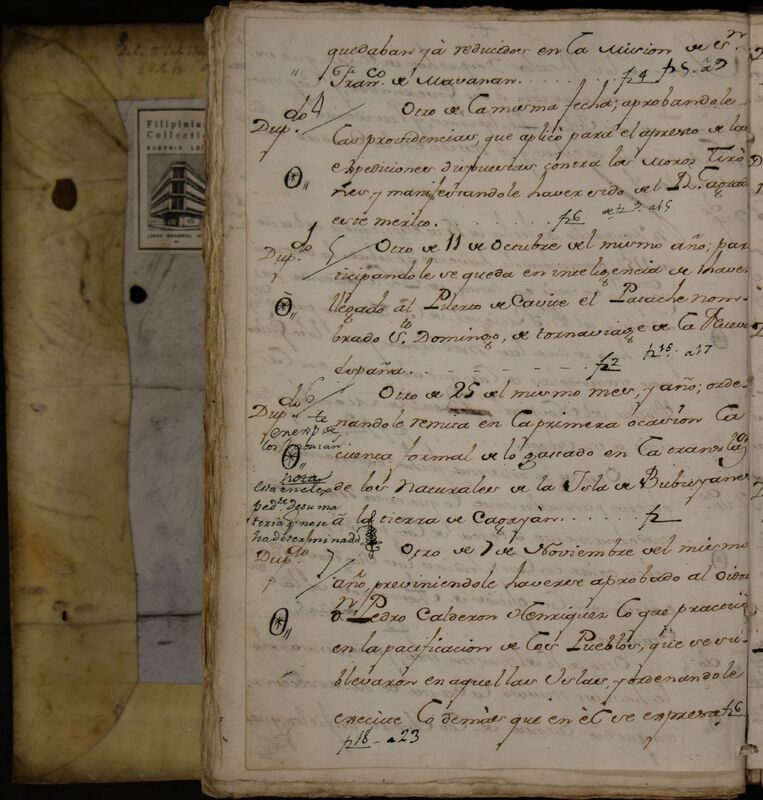 quedaban yà reducidos en la Mision de S.n
Fran.co de Mavanan. . . . . . . f 4 f 5. a 9
Dup.do 4 / Otro de la misma fecha; aprobandole
las providencias, que aplicò para el apresto de las
expediciones dispuestas contra los Moros Tiro
nes, y manifestandole haver sido del R. Agrado
este merito. . . . . . . . f 6
Dup.do 5 / Otro de 11 de Octubre del mismo año; par
ticipandole se queda en inteligencia de haver
llegado al Puerto de Cavite el Patache nom-
brado S.to Domingo, de tornaviage de la Nueva
España. . - - - - - f 2 f 16. a 17
Dup.do 6 / Otro de 25 del mismo mes, y año; orde
nandole remita en la primera ocasion la
cuenta formal de lo gastado en la translaz.on
de los Naturales de la Isla de Bubuyanes
à la tierra de Cagayàn. . . . . . f 2
nota
esta en el ex
ped.te de su ma
teria q.e no se
ha determinado
Dup.do 7 / Otro de 7 de Noviembre del mismo
año, previniendole haverse aprobado al Oidor
D.n Pedro Calderon Henriquez lo que practicò
en la pacificacion de los Pueblos, que se su-
blevaròn en aquellas Yslas, y ordenandole
execute lo demàs que en èl se expresa f 6
f 18 - a 23
Filipiniana
Collection
EUGENIO LOPEZ
LOPEZ MEMORIAL